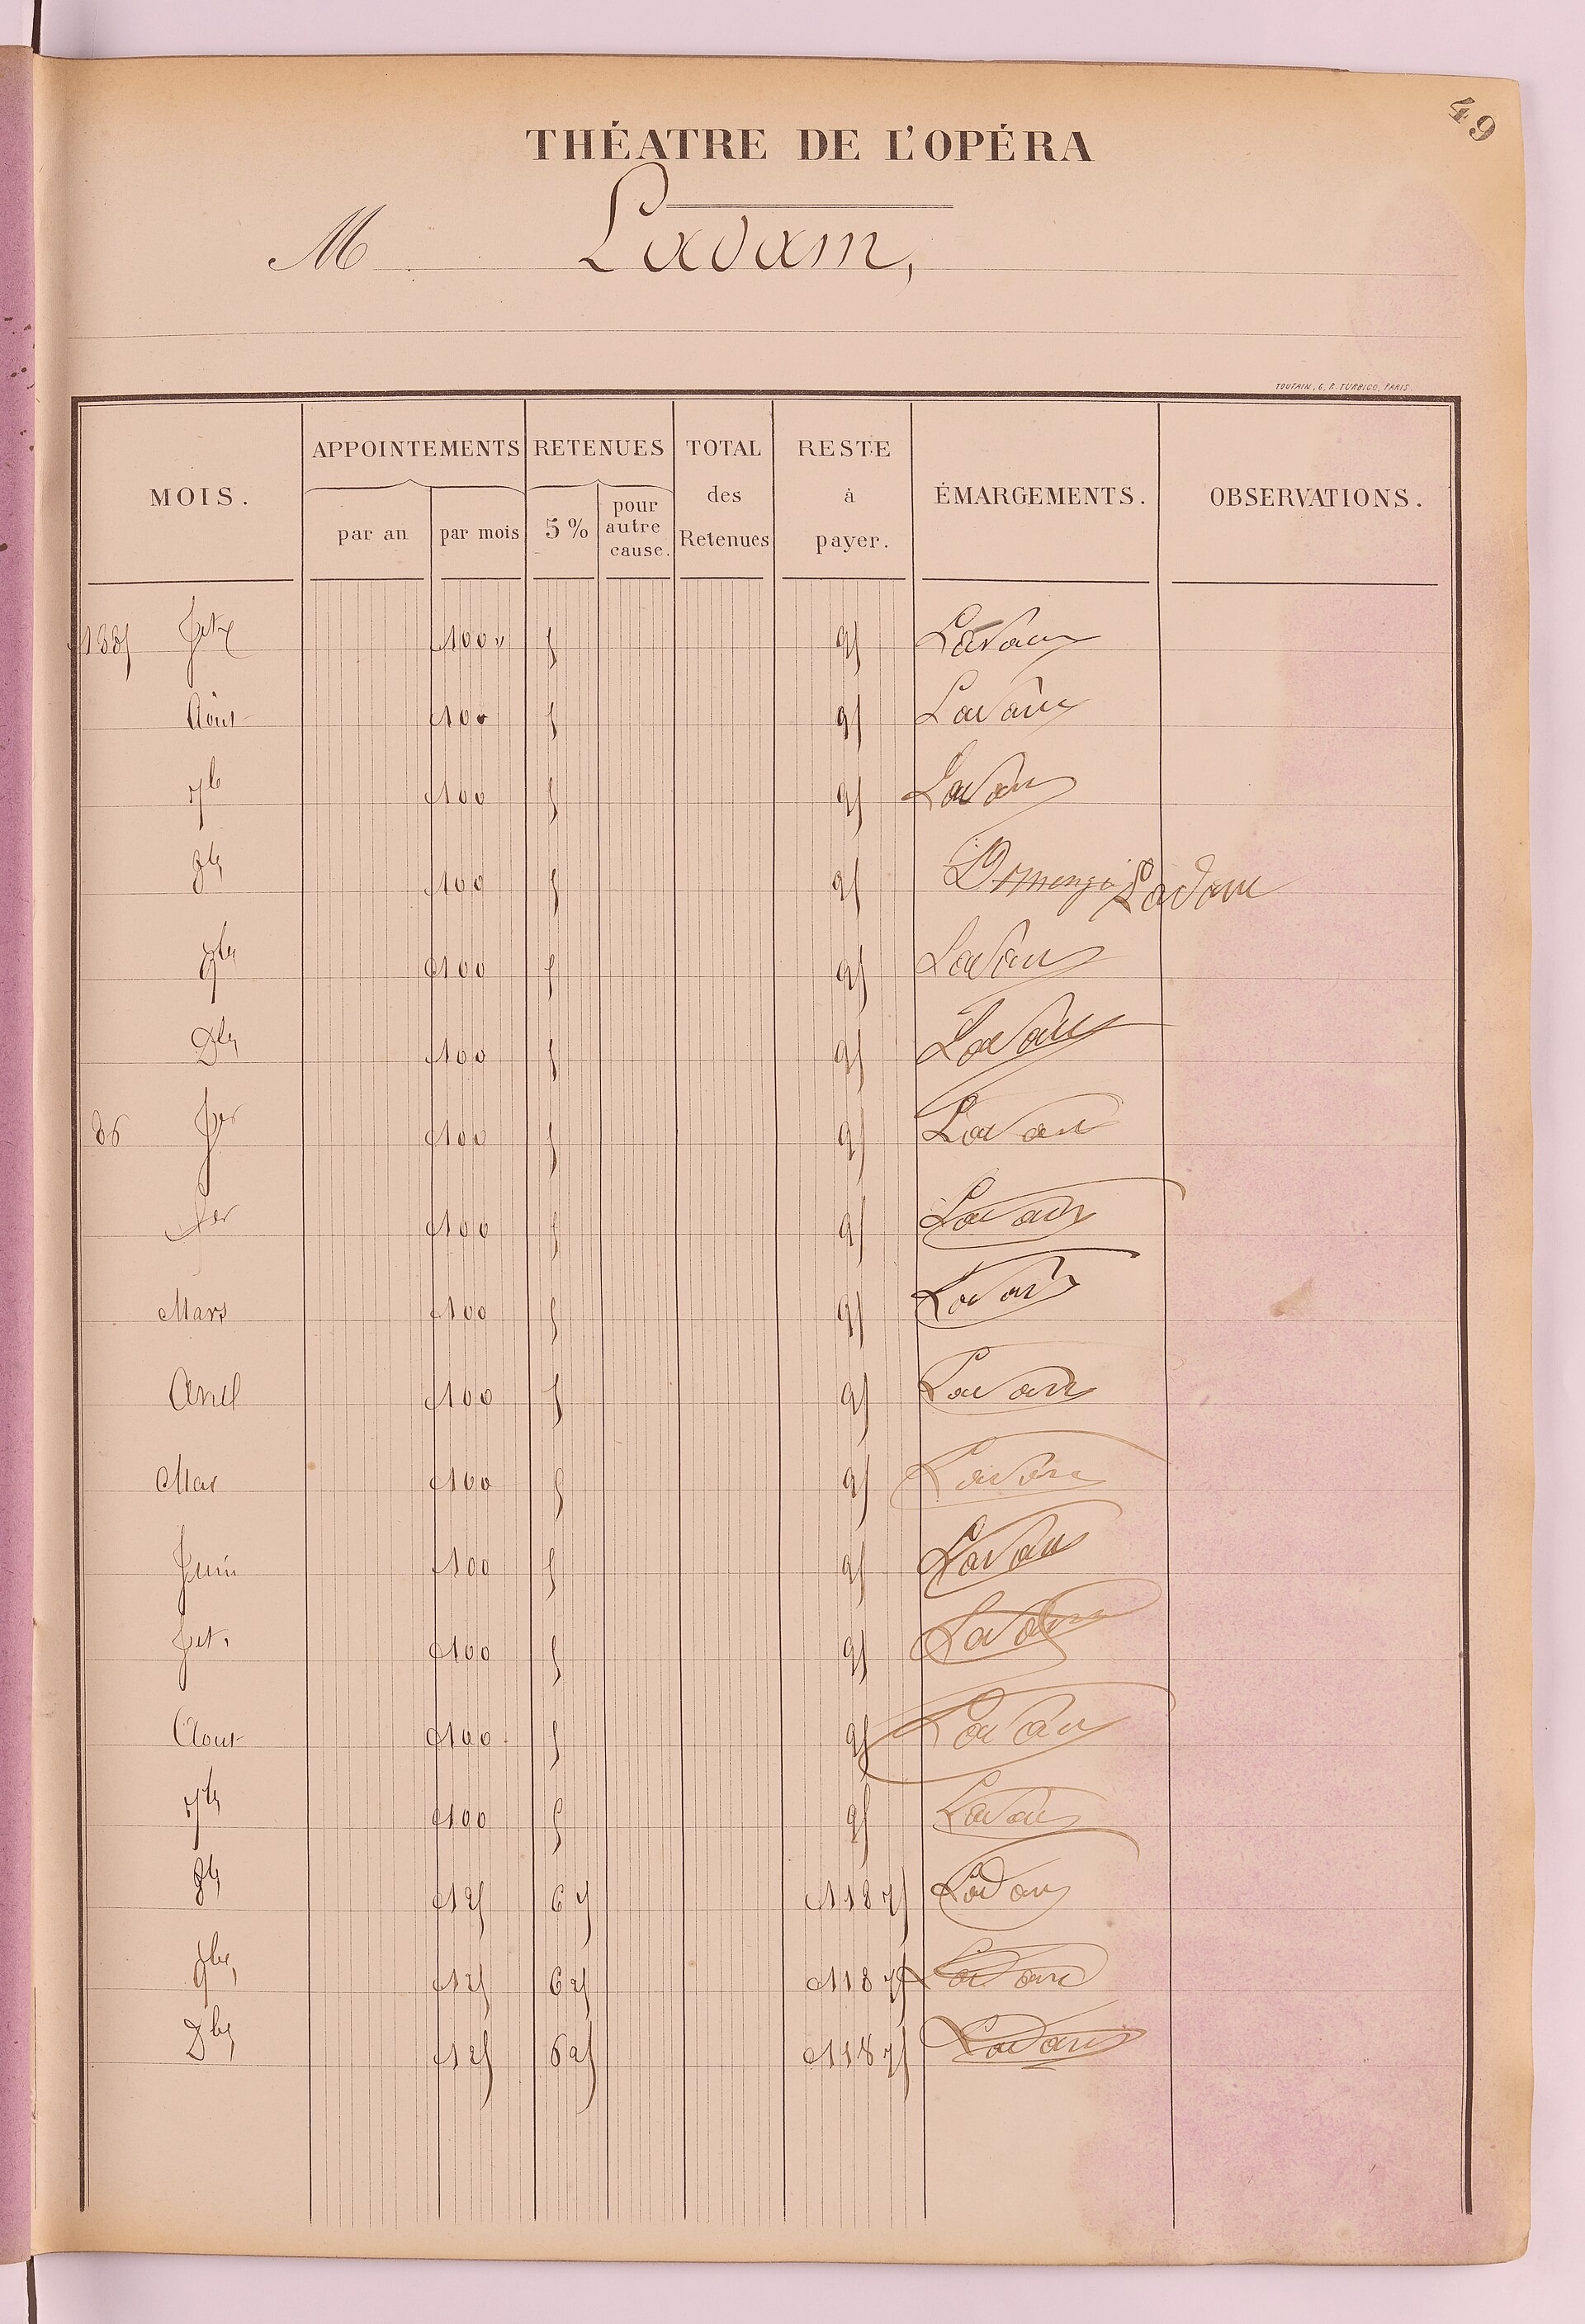 49
THÉATRE DE L'OPÉRA
M Ladam,
TOUTAIN, 6, R. TURBIGO, PARIS
MOIS. APPOINTEMENTS par an par mois RETENUES 5 % pour autre cause. TOTAL des Retenues RESTE à payer. ÉMARGEMENTS. OBSERVATIONS.
1885 Jet 100 " 5 95 Ladam
Août 100 5 95 Ladam
7b 100 5 95 Ladam
8bre 100 5 95 Ladam
9bre 100 5 95 Ladam
Dbre 100 5 95 Ladam
86 Jer 100 5 95 Ladam
fer 100 5 95 Ladam
Mars 100 5 95 Ladam
Avril 100 5 95 Ladam
Mai 100 5 95 Ladam
Juin 100 5 95 Ladam
Jet. 100 5 95 Ladam
Aout 100 5 95 Ladam
7bre 100 5 95 Ladam
8bre 125 6 25 118 75 Ladam
9bre 125 6 25 118 75 Ladam
Dbre 125 6 25 118 75 Ladam